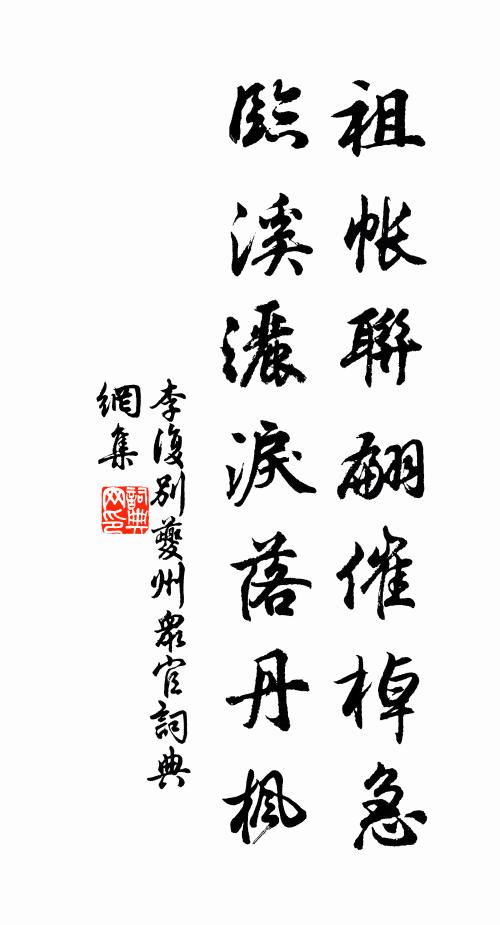 祖帳聯翩催棹急
臨溪灑淚落丹楓
李復別夔州眾官詞典
網集
詞典網印